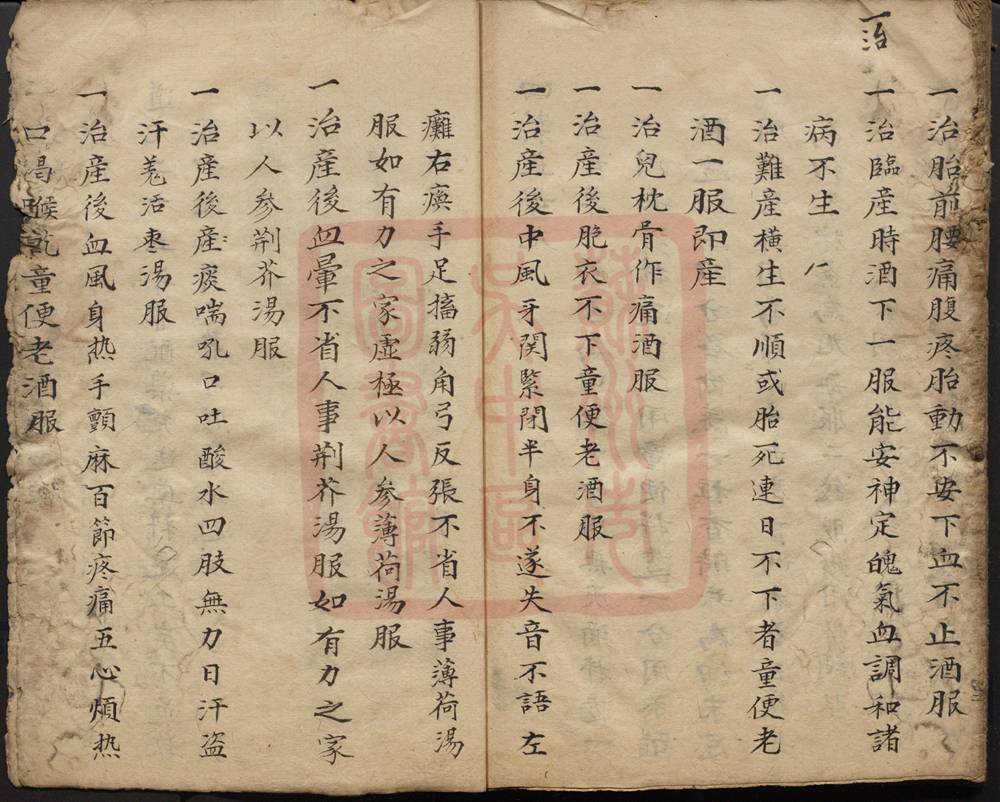 一治
一治胎前腰痛腹疼胎動不安下血不止酒服
一治臨産時酒下一服能安神定魄氣血調和諸
病不生
一治難産横生不順或胎死連日不下者童便老
酒一服即産
一治兒枕骨作痛酒服
一治産後胞衣不下童便老酒服
一治産後中風牙関緊閉半身不遂失音不語左
癱右瘓手足搐弱角弓反張不省人事薄荷湯
服如有力之家虚極以人参薄荷湯服
一治産後血暈不省人事荆芥湯服如有力之家
以人参荆芥湯服
一治産後産痰喘吼口吐酸水四肢無力日汗盗
汗羌活棗湯服
一治産後血風身热手顫麻百節疼痛五心煩热
一口渴喉乾童便老酒服
蘇州市
吴中区
圖書館